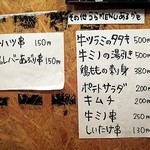 ハツ串 150円
レバーあぶり串 150円
その他うらMENUあります
牛ツラミのタタキ 500円
牛ミノの湯引き 500円
鶏ももの刺身 380円
ポテトサラダ 200円
キムチ 200円
牛ミノ串 250円
しいたけ串 130円